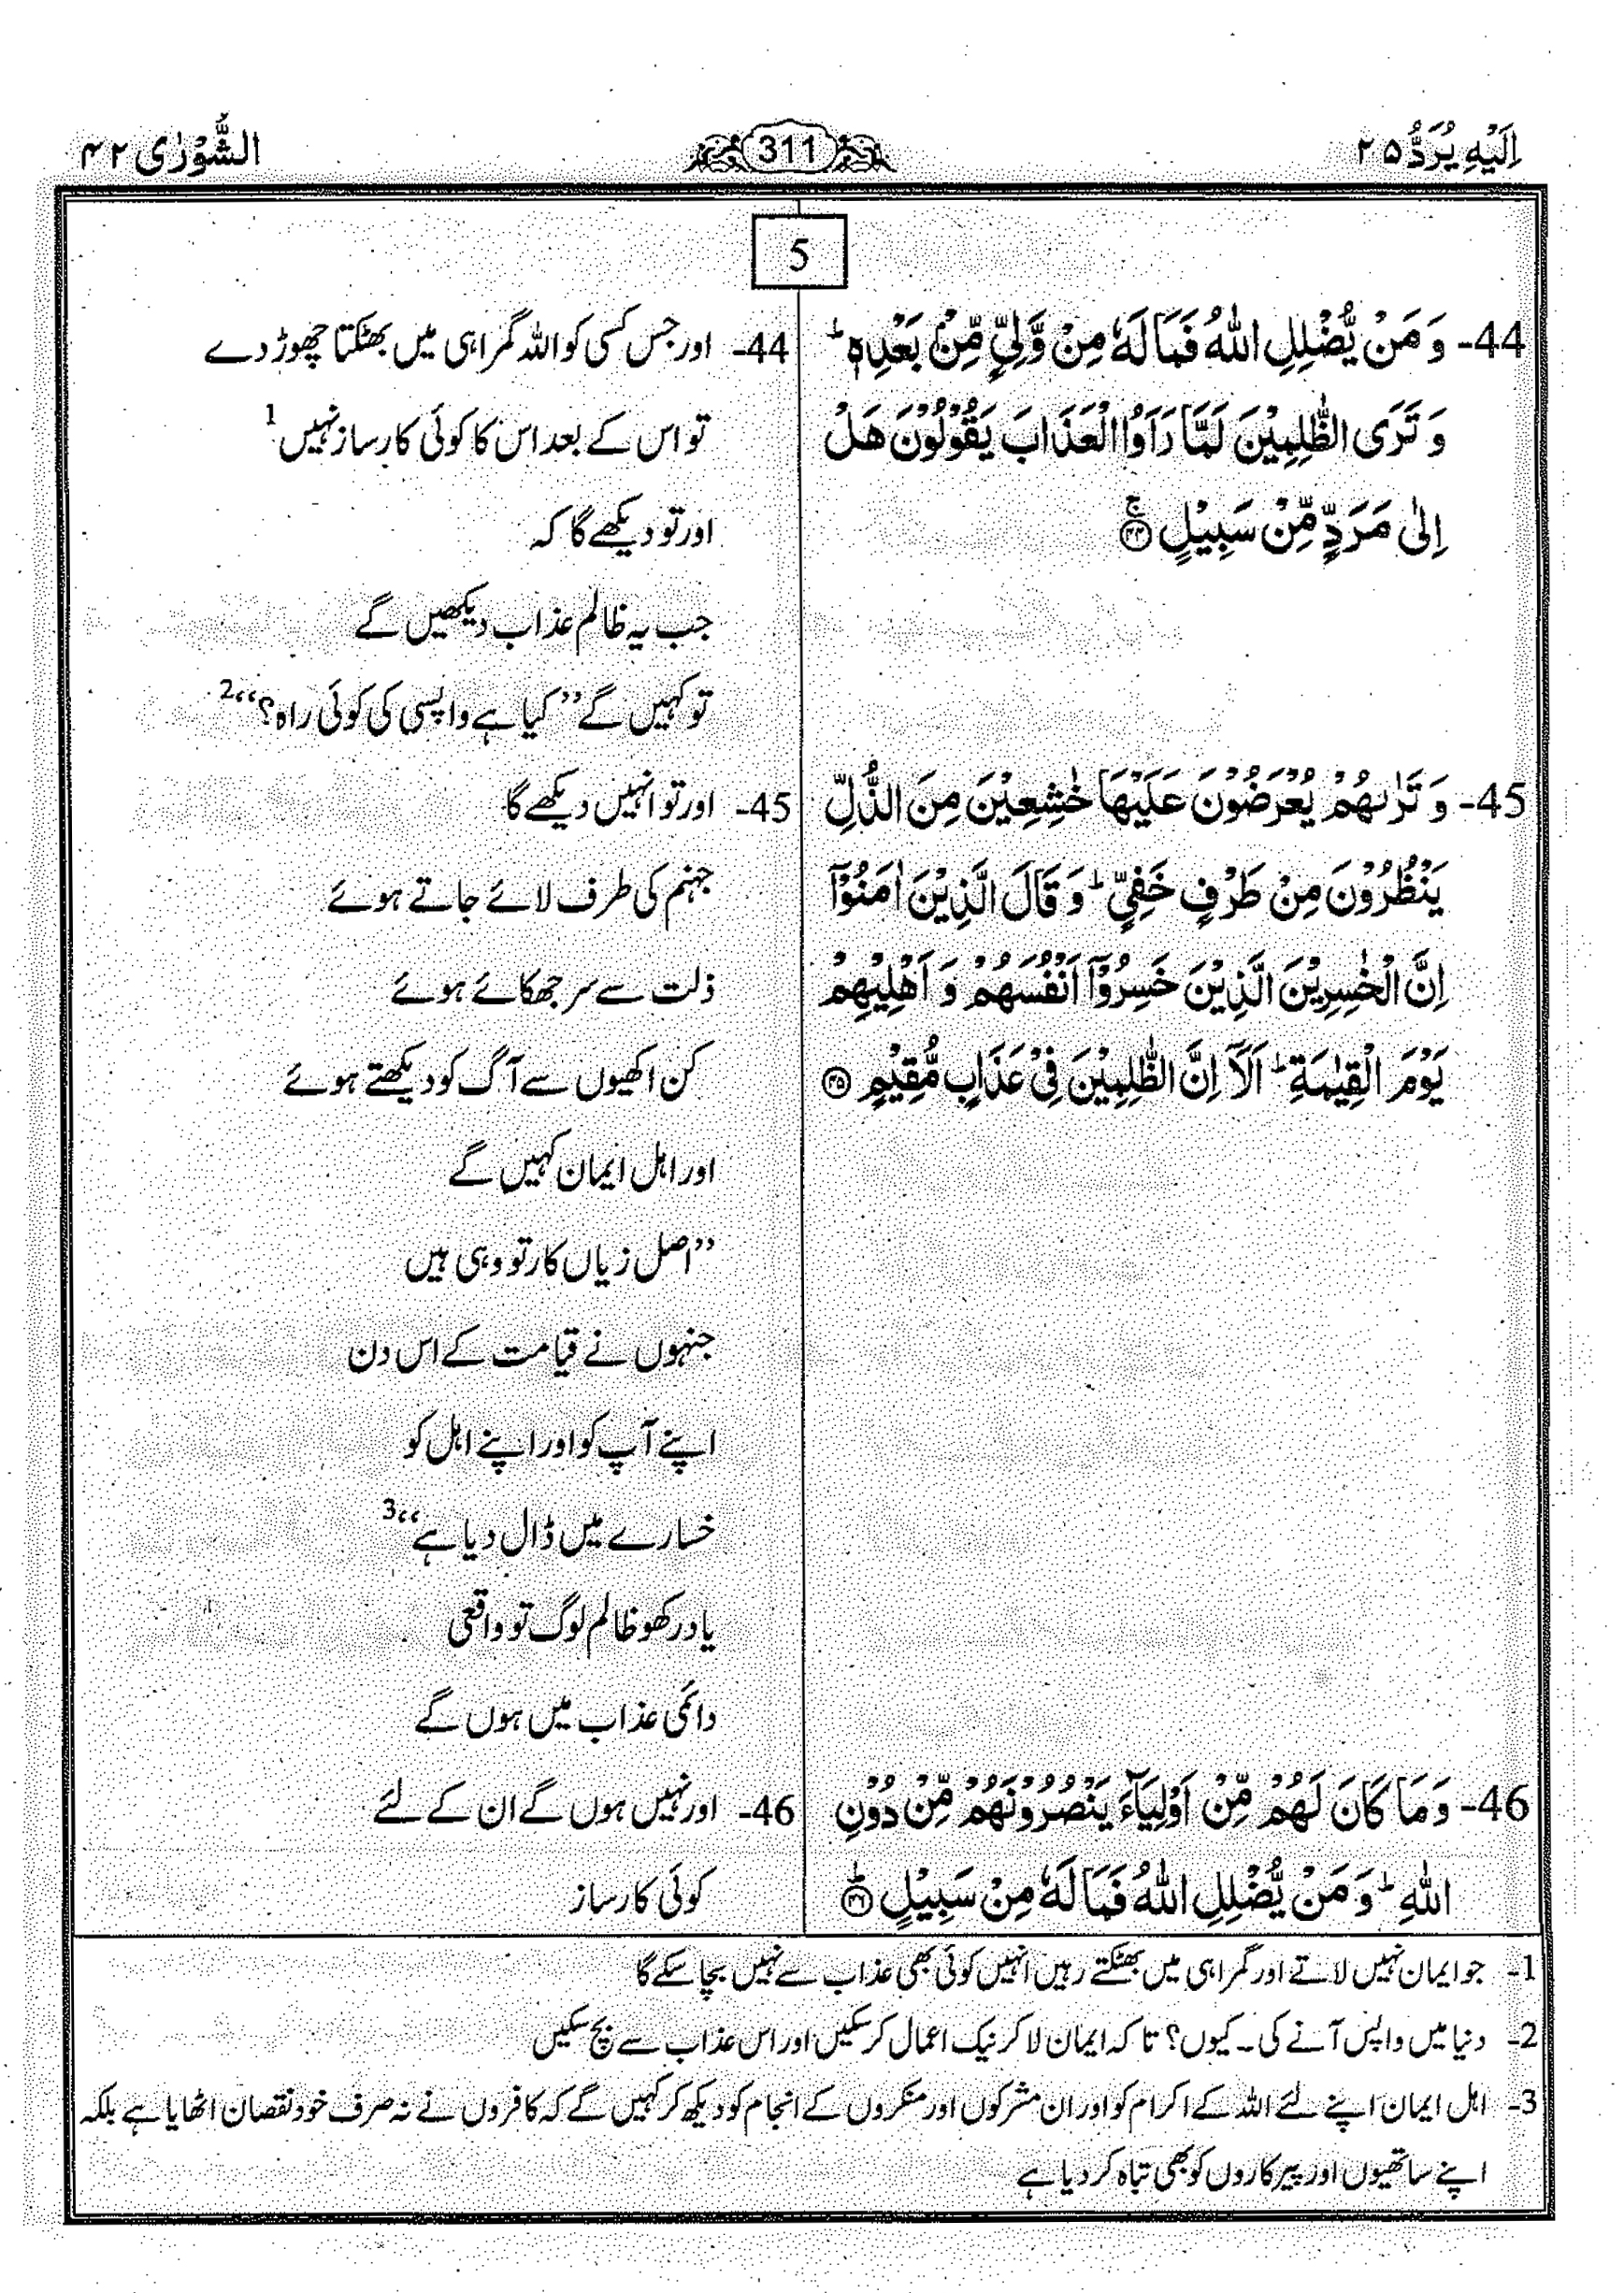 اِلَیْهِ یُرَدُّ ۲۵
311
الشُّوْرٰی ۴۲
5
44- وَ مَنْ یُّضْلِلِ اللّٰهُ فَمَا لَهٗ مِنْ وَّلِیٍّ مِّنْۢ بَعْدِهٖ ؕ
وَ تَرَی الظّٰلِمِیْنَ لَمَّا رَاَوُا الْعَذَابَ یَقُوْلُوْنَ هَلْ
اِلٰی مَرَدٍّ مِّنْ سَبِیْلٍ ۚ۝۴۴
44- اور جس کسی کو اللہ گمراہی میں بھٹکتا چھوڑ دے
تو اس کے بعد اس کا کوئی کارساز نہیں 1
اور تو دیکھے گا کہ
جب یہ ظالم عذاب دیکھیں گے
تو کہیں گے ’’کیا ہے واپسی کی کوئی راہ؟‘‘ 2
45- وَ تَرٰىهُمْ یُعْرَضُوْنَ عَلَیْهَا خٰشِعِیْنَ مِنَ الذُّلِّ
یَنْظُرُوْنَ مِنْ طَرْفٍ خَفِیٍّ ؕ وَ قَالَ الَّذِیْنَ اٰمَنُوْۤا
اِنَّ الْخٰسِرِیْنَ الَّذِیْنَ خَسِرُوْۤا اَنْفُسَهُمْ وَ اَهْلِیْهِمْ
یَوْمَ الْقِیٰمَةِ ؕ اَلَاۤ اِنَّ الظّٰلِمِیْنَ فِیْ عَذَابٍ مُّقِیْمٍ ۝۴۵
45- اور تو انہیں دیکھے گا
جہنم کی طرف لائے جاتے ہوئے
ذلت سے سر جھکائے ہوئے
کن اکھیوں سے آگ کو دیکھتے ہوئے
اور اہل ایمان کہیں گے
’’اصل زیاں کار تو وہی ہیں
جنہوں نے قیامت کے اس دن
اپنے آپ کو اور اپنے اہل کو
خسارے میں ڈال دیا ہے‘‘ 3
یاد رکھو ظالم لوگ تو واقعی
دائمی عذاب میں ہوں گے
46- وَ مَا كَانَ لَهُمْ مِّنْ اَوْلِیَآءَ یَنْصُرُوْنَهُمْ مِّنْ دُوْنِ
اللّٰهِ ؕ وَ مَنْ یُّضْلِلِ اللّٰهُ فَمَا لَهٗ مِنْ سَبِیْلٍ ؕ۝۴۶
46- اور نہیں ہوں گے ان کے لئے
کوئی کارساز
1- جو ایمان نہیں لاتے اور گمراہی میں بھٹکتے رہیں انہیں کوئی بھی عذاب سے نہیں بچا سکے گا
2- دنیا میں واپس آنے کی۔ کیوں؟ تا کہ ایمان لا کر نیک اعمال کر سکیں اور اس عذاب سے بچ سکیں
3- اہل ایمان اپنے لئے اللہ کے اکرام کو اور ان مشرکوں اور منکروں کے انجام کو دیکھ کر کہیں گے کہ کافروں نے نہ صرف خود نقصان اٹھایا ہے بلکہ
اپنے ساتھیوں اور پیرکاروں کو بھی تباہ کر دیا ہے